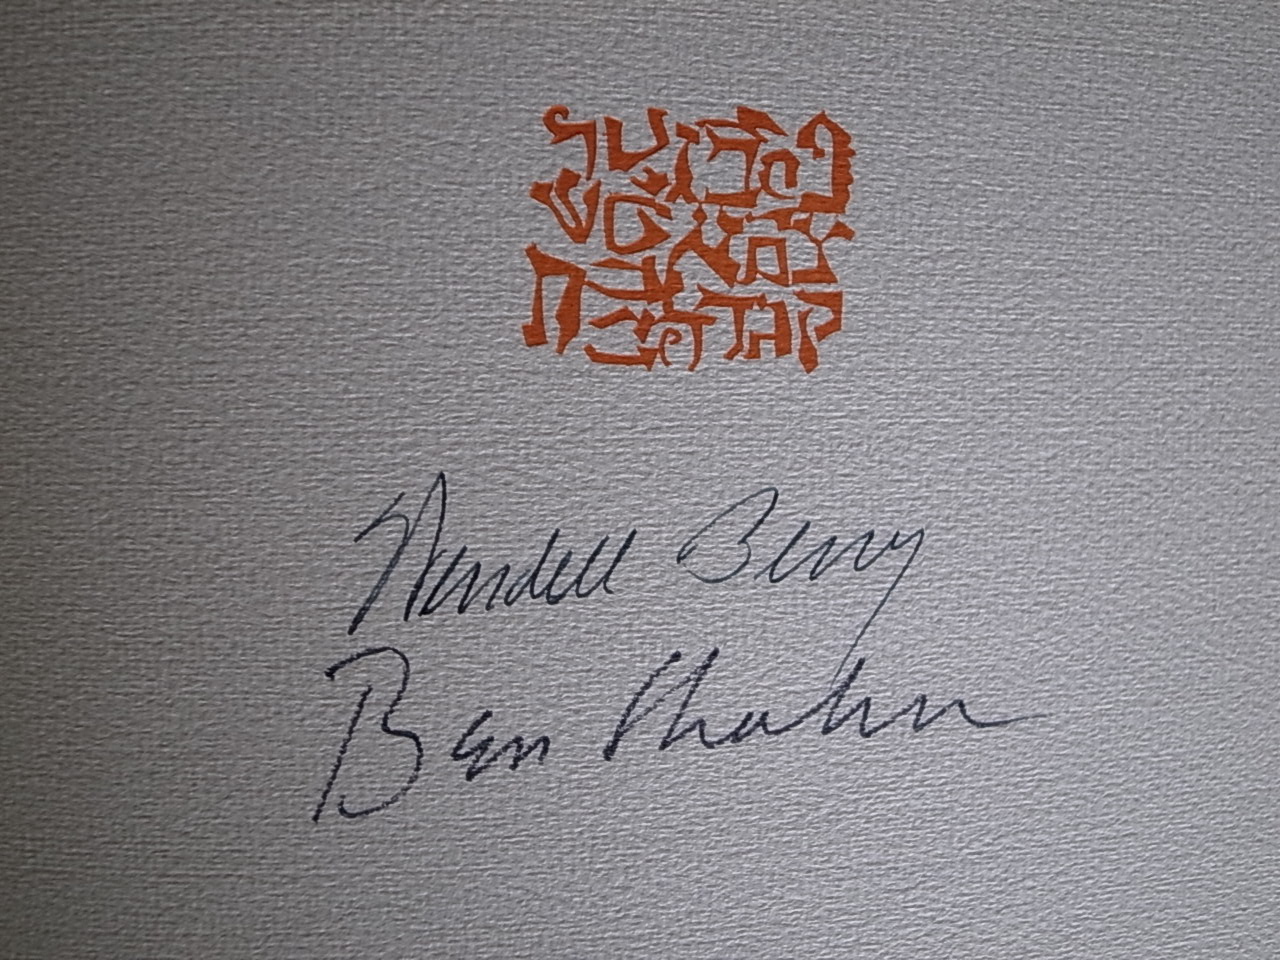 Wendell Berry
Ben Shahn